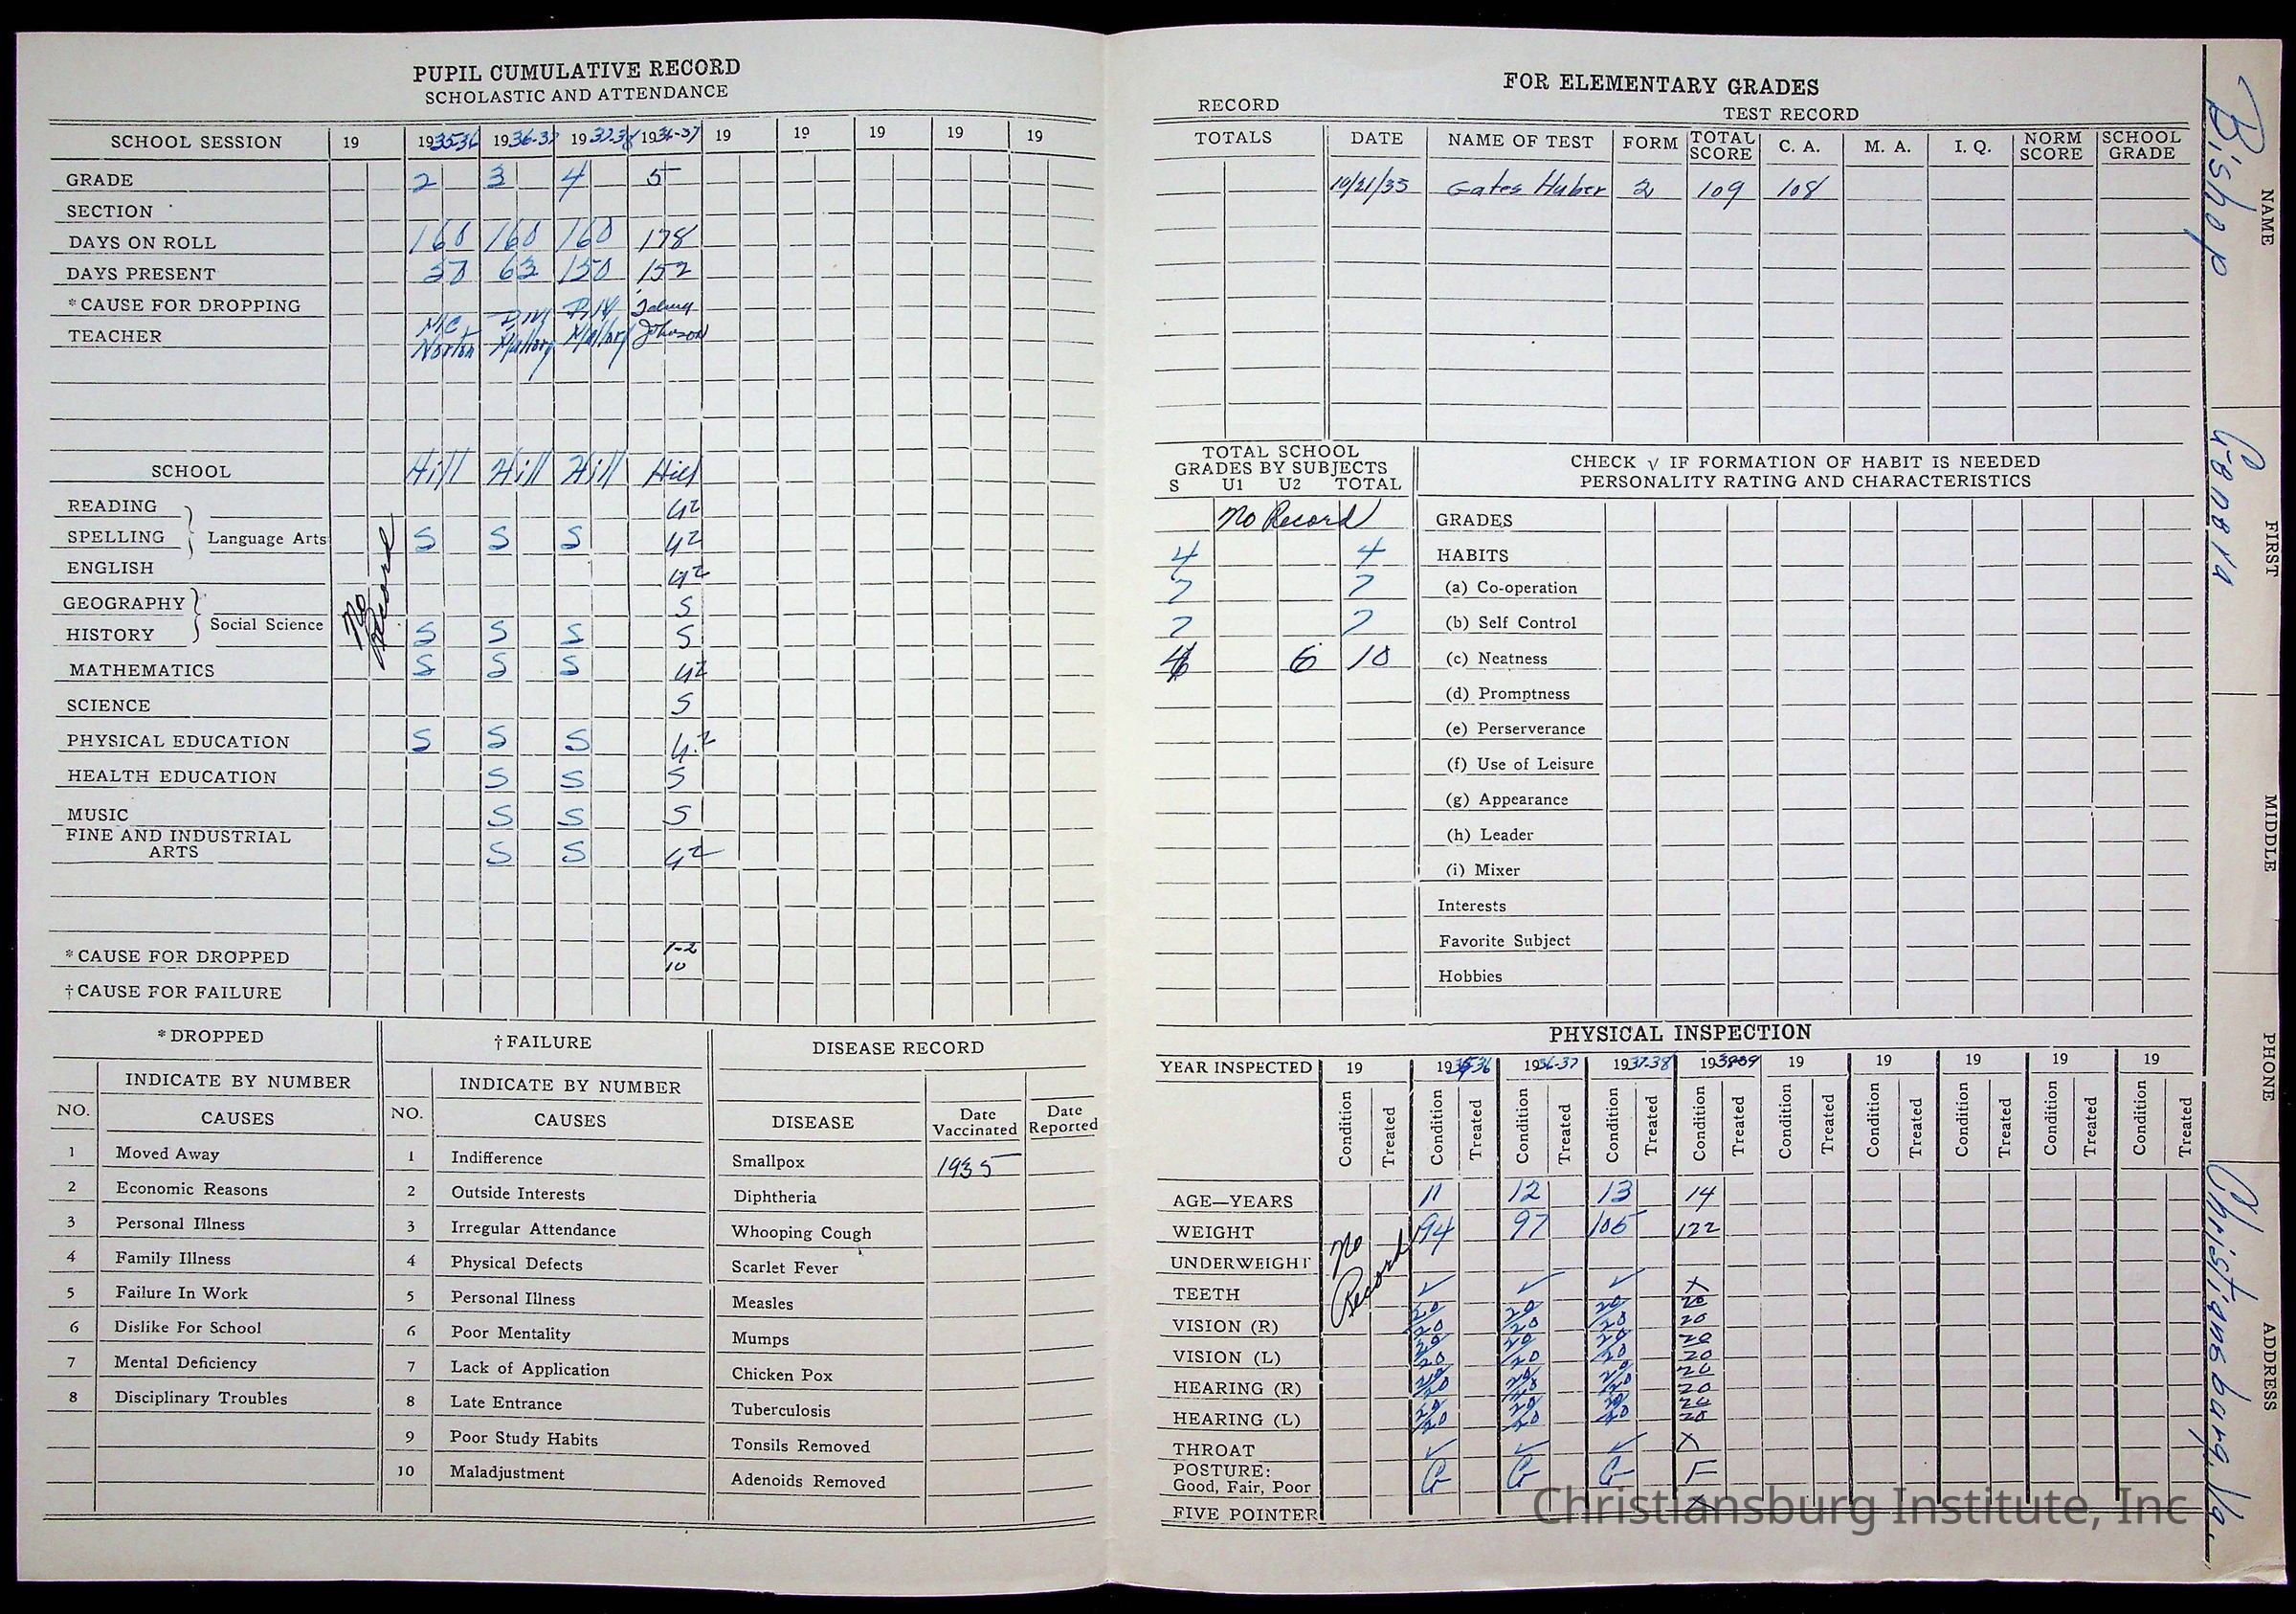 PUPIL CUMULATIVE RECORD
SCHOLASTIC AND ATTENDANCE
SCHOOL SESSION 19 1935-36 1936-37 1937-38 1936-37 19 19 19 19 19
GRADE 2 3 4 5
SECTION
DAYS ON ROLL 160 160 160 178
DAYS PRESENT 37 63 150 152
*CAUSE FOR DROPPING
TEACHER Norton Mallory Mallory Johnson
SCHOOL Hill Hill Hill Hill
READING U2
SPELLING Language Arts S S S U2
ENGLISH U2
GEOGRAPHY S
HISTORY Social Science S S S S
No Record
MATHEMATICS S S S U2
SCIENCE S
PHYSICAL EDUCATION S S S U2
HEALTH EDUCATION S S S
MUSIC S S S
FINE AND INDUSTRIAL
ARTS S S U2
*CAUSE FOR DROPPED 1-2
10
†CAUSE FOR FAILURE
*DROPPED
INDICATE BY NUMBER
NO. CAUSES
1 Moved Away
2 Economic Reasons
3 Personal Illness
4 Family Illness
5 Failure In Work
6 Dislike For School
7 Mental Deficiency
8 Disciplinary Troubles
†FAILURE
INDICATE BY NUMBER
NO. CAUSES
1 Indifference
2 Outside Interests
3 Irregular Attendance
4 Physical Defects
5 Personal Illness
6 Poor Mentality
7 Lack of Application
8 Late Entrance
9 Poor Study Habits
10 Maladjustment
DISEASE RECORD
DISEASE Date Vaccinated Date Reported
Smallpox 1935
Diphtheria
Whooping Cough
Scarlet Fever
Measles
Mumps
Chicken Pox
Tuberculosis
Tonsils Removed
Adenoids Removed
FOR ELEMENTARY GRADES
RECORD
TEST RECORD
TOTALS DATE NAME OF TEST FORM TOTAL SCORE C. A. M. A. I. Q. NORM SCORE SCHOOL GRADE
10/21/35 Gates Huber 2 109 108
TOTAL SCHOOL
GRADES BY SUBJECTS
S U1 U2 TOTAL
No Record
4 4
7 7
7 7
6 10
CHECK √ IF FORMATION OF HABIT IS NEEDED
PERSONALITY RATING AND CHARACTERISTICS
GRADES
HABITS
(a) Co-operation
(b) Self Control
(c) Neatness
(d) Promptness
(e) Perserverance
(f) Use of Leisure
(g) Appearance
(h) Leader
(i) Mixer
Interests
Favorite Subject
Hobbies
PHYSICAL INSPECTION
YEAR INSPECTED 19 1935-36 1936-37 1937-38 1938-39 19 19 19 19 19
Condition Treated Condition Treated Condition Treated Condition Treated Condition Treated Condition Treated Condition Treated Condition Treated Condition Treated Condition Treated
AGE—YEARS 11 12 13 14
WEIGHT 94 97 105 122
No Record
UNDERWEIGHT
TEETH ✓ ✓ ✓ X
VISION (R) 20/20 20/20 20/20 20/20
VISION (L) 20/20 20/20 20/20 20/20
HEARING (R) 20/20 20/20 20/20 20/20
HEARING (L) 20/20 20/20 20/20 20/20
THROAT ✓ ✓ ✓ X
POSTURE:
Good, Fair, Poor G G G F
FIVE POINTER X
NAME Bishop
FIRST Genera
MIDDLE
PHONE
ADDRESS Christiansburg, Va.
Christiansburg Institute, Inc